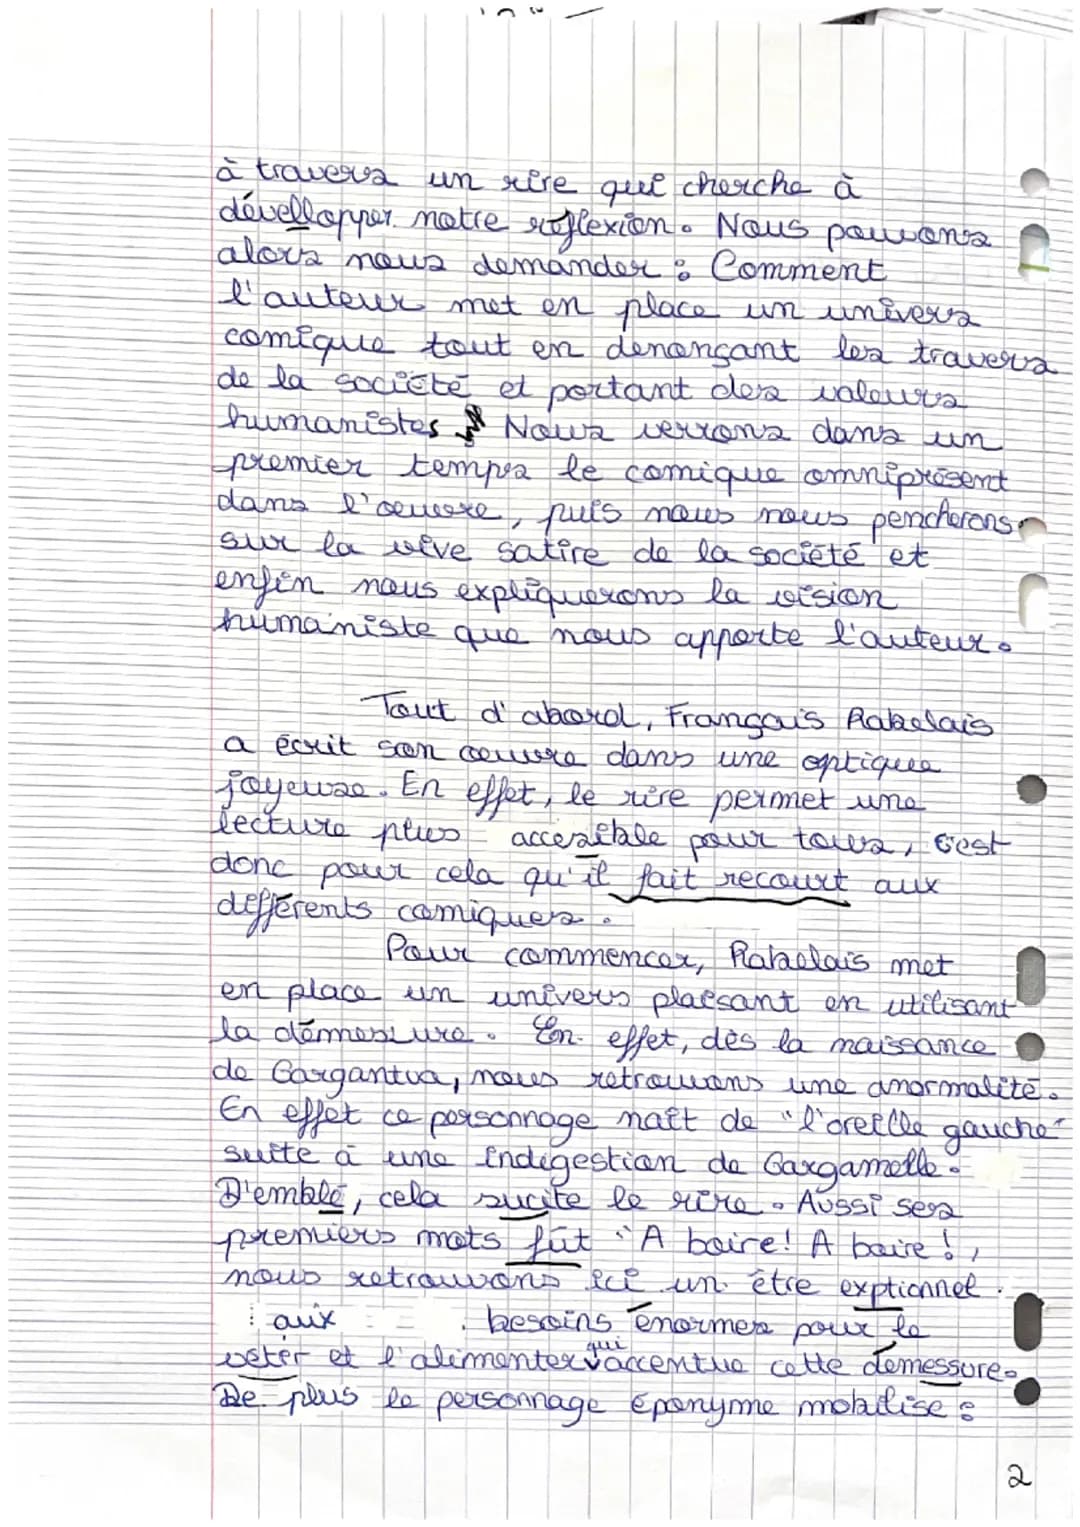 à travers un rire qui cherche à
dévellopper notre réflexion. Nous pouvons
alors nous demander : Comment
l'auteur met en place un univers
comique tout en dénonçant les travers
de la société et portant des valeurs
humanistes Nous verrons dans un
premier temps le comique omniprésent
dans l'oeuvre, puis nous nous pencherons
sur la vive satire de la société et
enfin nous expliquerons la vision
humaniste que nous apporte l'auteur.
Tout d'abord, François Rabelais
a écrit son oeuvre dans une optique
joyeuse. En effet, le rire permet une
lecture plus accesible pour tous, c'est
donc pour cela qu'il fait recourt aux
différents comiques.
Pour commencer, Rabelais met
en place un univers plaisant en utilisant
la démesure. En effet, dès la naissance
de Gargantua, nous retrouvons une anormalité.
En effet ce personnage naît de "l'oreille gauche"
suite à une indigestion de Gargamelle.
D'emblé, cela sucite le rire. Aussi ses
premiers mots fût "A boire! A boire!,
nous retrouvons ici un être exptionnel.
aux besoins énormes pour le
vêtir et l'alimenter qui accentue cette démessure.
De plus le personnage éponyme mobilise :
2